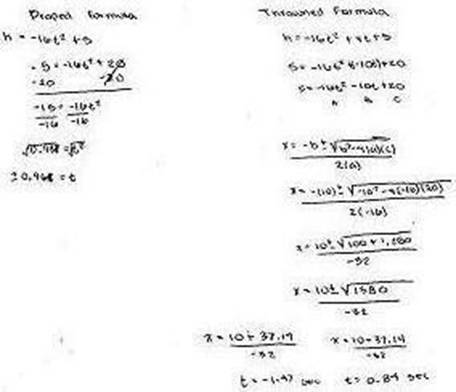 Droped Formula
h = -16t² + s
5 = -16t² + 20
-20 -20
-15 = -16t²
-16 -16
√0.938 = √t²
±0.968 = t
Throwned Formula
h = -16t² + vt + s
5 = -16t² + (-10t) + 20
5 = -16t² - 10t + 20
a b c
x = -b ± √b² - 4(a)(c)
2(a)
x = -(-10) ± √-10² - 4(-16)(20)
2(-16)
x = 10 ± √100 + 1,280
-32
x = 10 ± √1380
-32
x = 10 + 37.14
-32
x = 10 - 37.14
-32
t = -1.47 sec
t = 0.84 sec